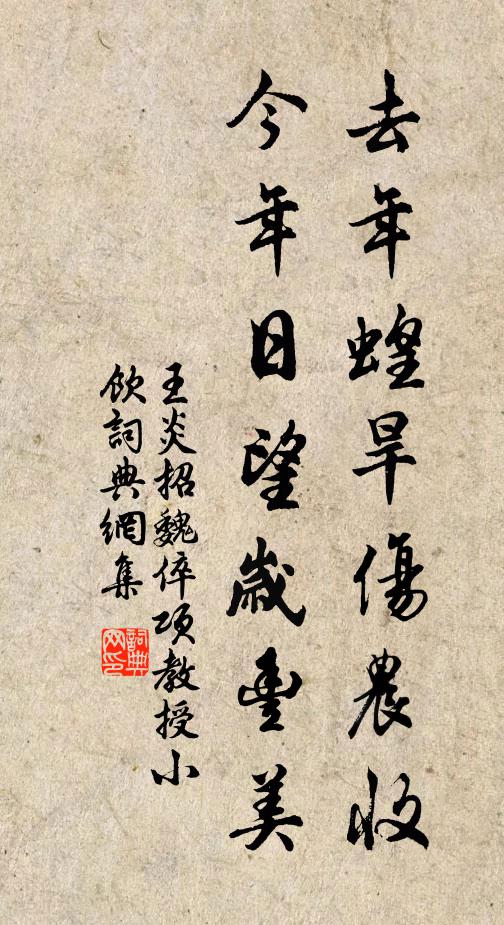 去年蝗旱傷農收
今年日望歲豐美
王炎招魏倅項教授小
飲詞典網集
詞典
网印